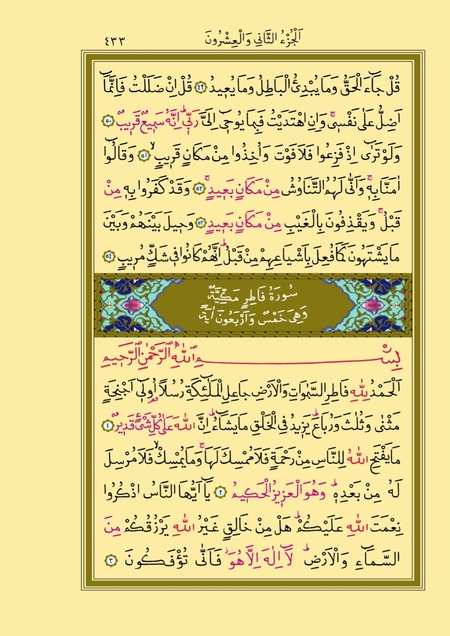 اَلْجُزْءُ الثَّانِي وَالْعِشْرُونَ ٤٣٣
قُلْ جَاءَ الْحَقُّ وَمَا يُبْدِئُ الْبَاطِلُ وَمَا يُعِيدُ ﴿٤٩﴾ قُلْ اِنْ ضَلَلْتُ فَاِنَّمَا
اَضِلُّ عَلٰى نَفْسِىۚ وَاِنِ اهْتَدَيْتُ فَبِمَا يُوحٖى اِلَىَّ رَبّٖىۜ اِنَّهُ سَمٖيعٌ قَرٖيبٌ ﴿٥٠﴾
وَلَوْ تَرٰٓى اِذْ فَزِعُوا فَلَا فَوْتَ وَاُخِذُوا مِنْ مَكَانٍ قَرٖيبٍۙ ﴿٥١﴾ وَقَالُٓوا
اٰمَنَّا بِهٖۚ وَاَنّٰى لَهُمُ التَّنَاوُشُ مِنْ مَكَانٍ بَعٖيدٍۚ ﴿٥٢﴾ وَقَدْ كَفَرُوا بِهٖ مِنْ
قَبْلُۚ وَيَقْذِفُونَ بِالْغَيْبِ مِنْ مَكَانٍ بَعٖيدٍ ﴿٥٣﴾ وَحٖيلَ بَيْنَهُمْ وَبَيْنَ
مَا يَشْتَهُونَ كَمَا فُعِلَ بِاَشْيَاعِهِمْ مِنْ قَبْلُۜ اِنَّهُمْ كَانُوا فٖى شَكٍّ مُرٖيبٍ ﴿٥٤﴾
سُورَةُ فَاطِرٍ مَكِّيَّةٌ
وَهِىَ خَمْسٌ وَاَرْبَعُونَ اٰيَةً
بِسْمِ اللّٰهِ الرَّحْمٰنِ الرَّحٖيمِ
اَلْحَمْدُ لِلّٰهِ فَاطِرِ السَّمٰوَاتِ وَالْاَرْضِ جَاعِلِ الْمَلٰٓئِكَةِ رُسُلًا اُولٖٓى اَجْنِحَةٍ
مَثْنٰى وَثُلٰثَ وَرُبَاعَۜ يَزٖيدُ فِى الْخَلْقِ مَا يَشَٓاءُۜ اِنَّ اللّٰهَ عَلٰى كُلِّ شَىْءٍ قَدٖيرٌ ﴿١﴾
مَا يَفْتَحِ اللّٰهُ لِلنَّاسِ مِنْ رَحْمَةٍ فَلَا مُمْسِكَ لَهَاۚ وَمَا يُمْسِكْۙ فَلَا مُرْسِلَ
لَهُ مِنْ بَعْدِهٖۜ وَهُوَ الْعَزٖيزُ الْحَكٖيمُ ﴿٢﴾ يَٓا اَيُّهَا النَّاسُ اذْكُرُوا
نِعْمَتَ اللّٰهِ عَلَيْكُمْۜ هَلْ مِنْ خَالِقٍ غَيْرُ اللّٰهِ يَرْزُقُكُمْ مِنَ
السَّمَٓاءِ وَالْاَرْضِۜ لَٓا اِلٰهَ اِلَّا هُوَۘ فَاَنّٰى تُؤْفَكُونَ ﴿٣﴾